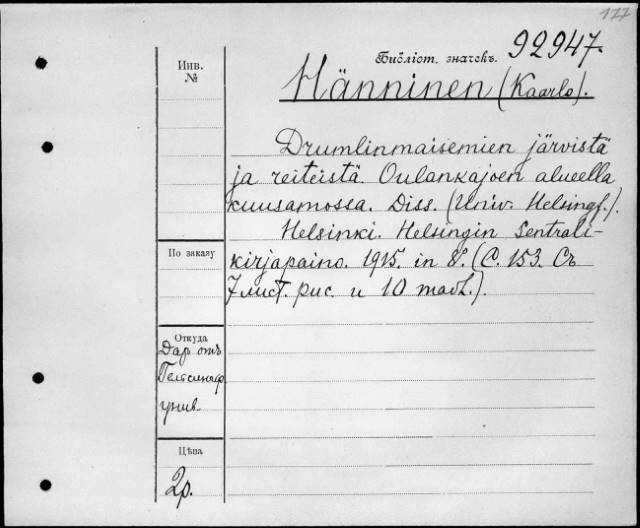 177
Библіот. значекъ. 92947.
Инв.
№
Hänninen (Kaarlo).
Drumlinmaisemien järvistä
ja reiteistä. Oulankajoen alueella
kuusamossa. Diss. (Univ. Helsingf.).
Helsinki. Helsingin Sentrali-
kirjapaino. 1915. in 8°. (С. 153. Съ
7 лист. рис. и 10 табл.).
По заказу
Откуда
Даръ отъ
Гельсингф.
унив.
Цѣна
2р.